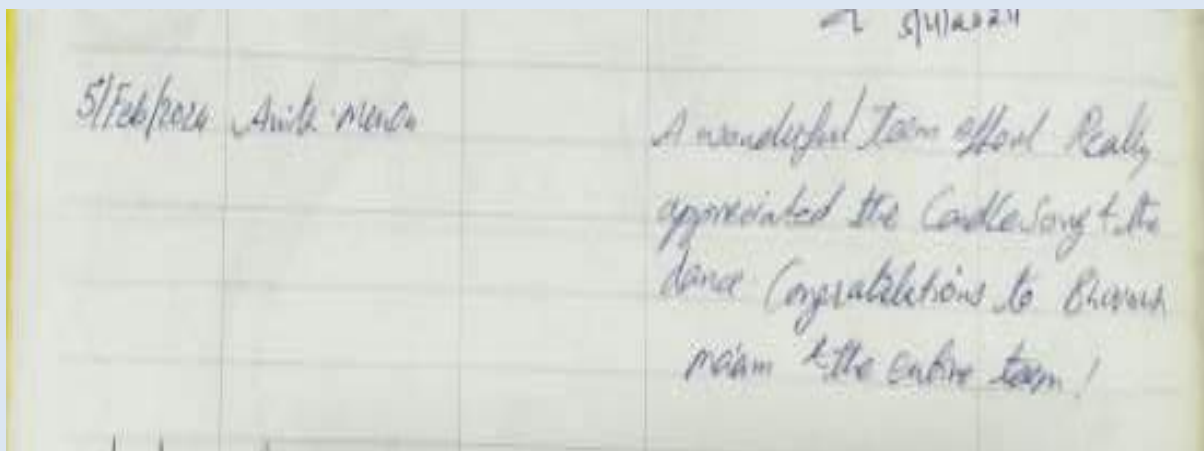 5/4/2024
5/Feb/2024 Anita Menon
A wonderful team effort Really
appreciated the Candle Song & the
dance Congratulations to
ma'am & the entire team!